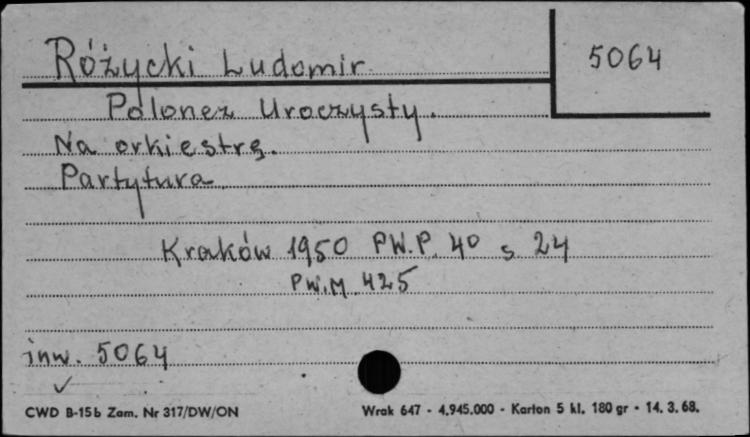 Różycki Ludomir
5064
Polonez Uroczysty.
Na orkiestrę.
Partytura
Kraków 1950 PW.P. 4° s 24
PW.M. 425
inw. 5064
CWD B-15b Zam. Nr 317/DW/ON
Wrak 647 - 4.945.000 - Karton 5 kl. 180 gr - 14. 3. 68.